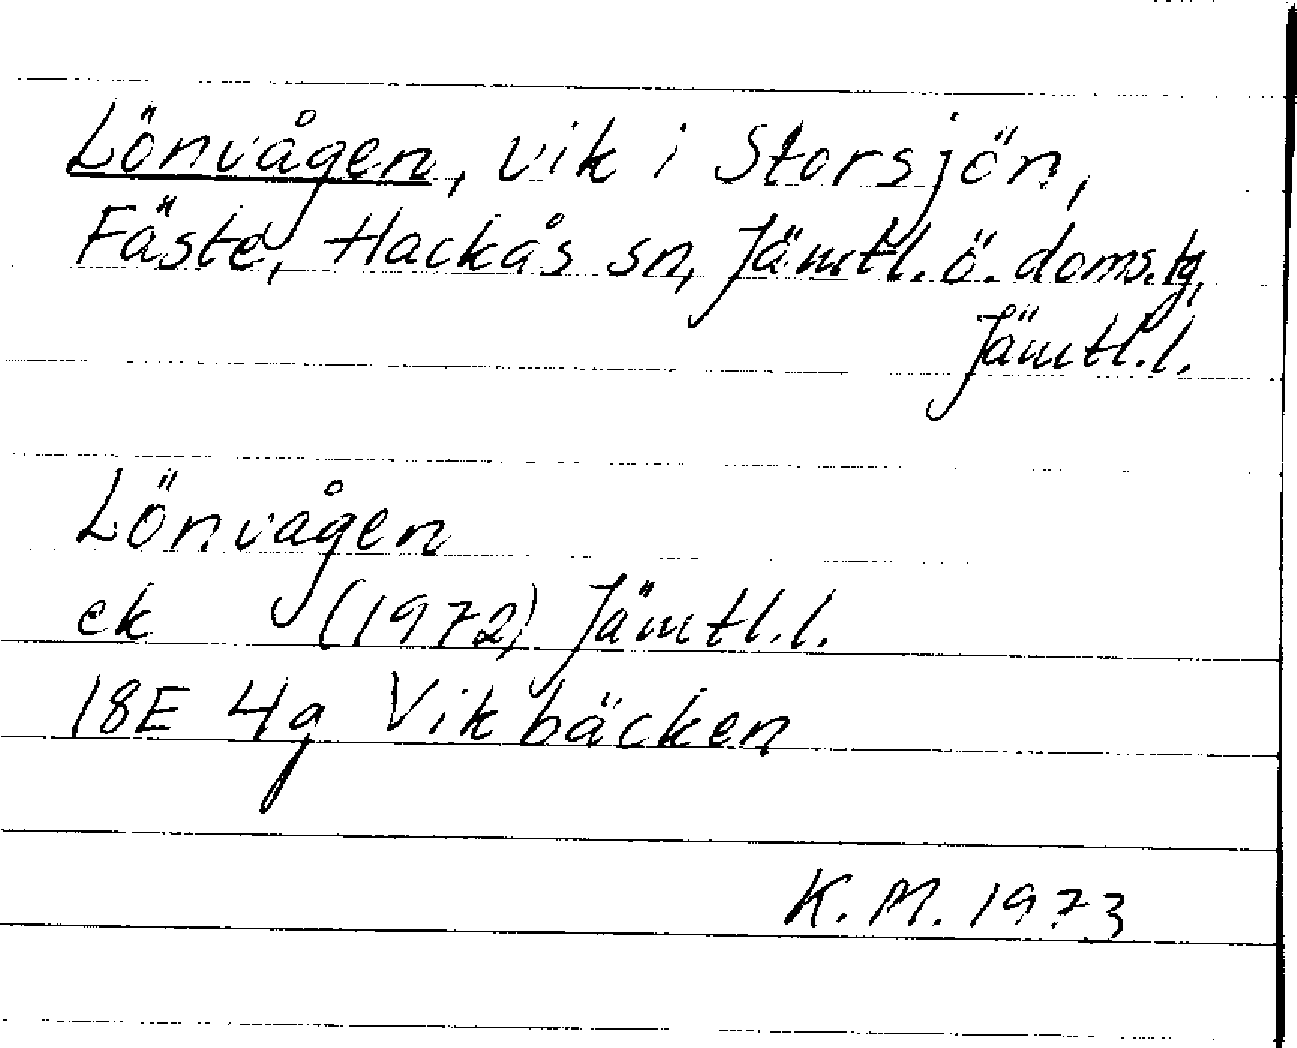 Lönvågen, vik i Storsjön,
Fäste, Hackås sn, Jämtl. ö. doms.hg,
Jämtl.l.
Lönvågen
ek (1972) Jämtl.l.
18E 4g Vikbäcken
K.M. 1973